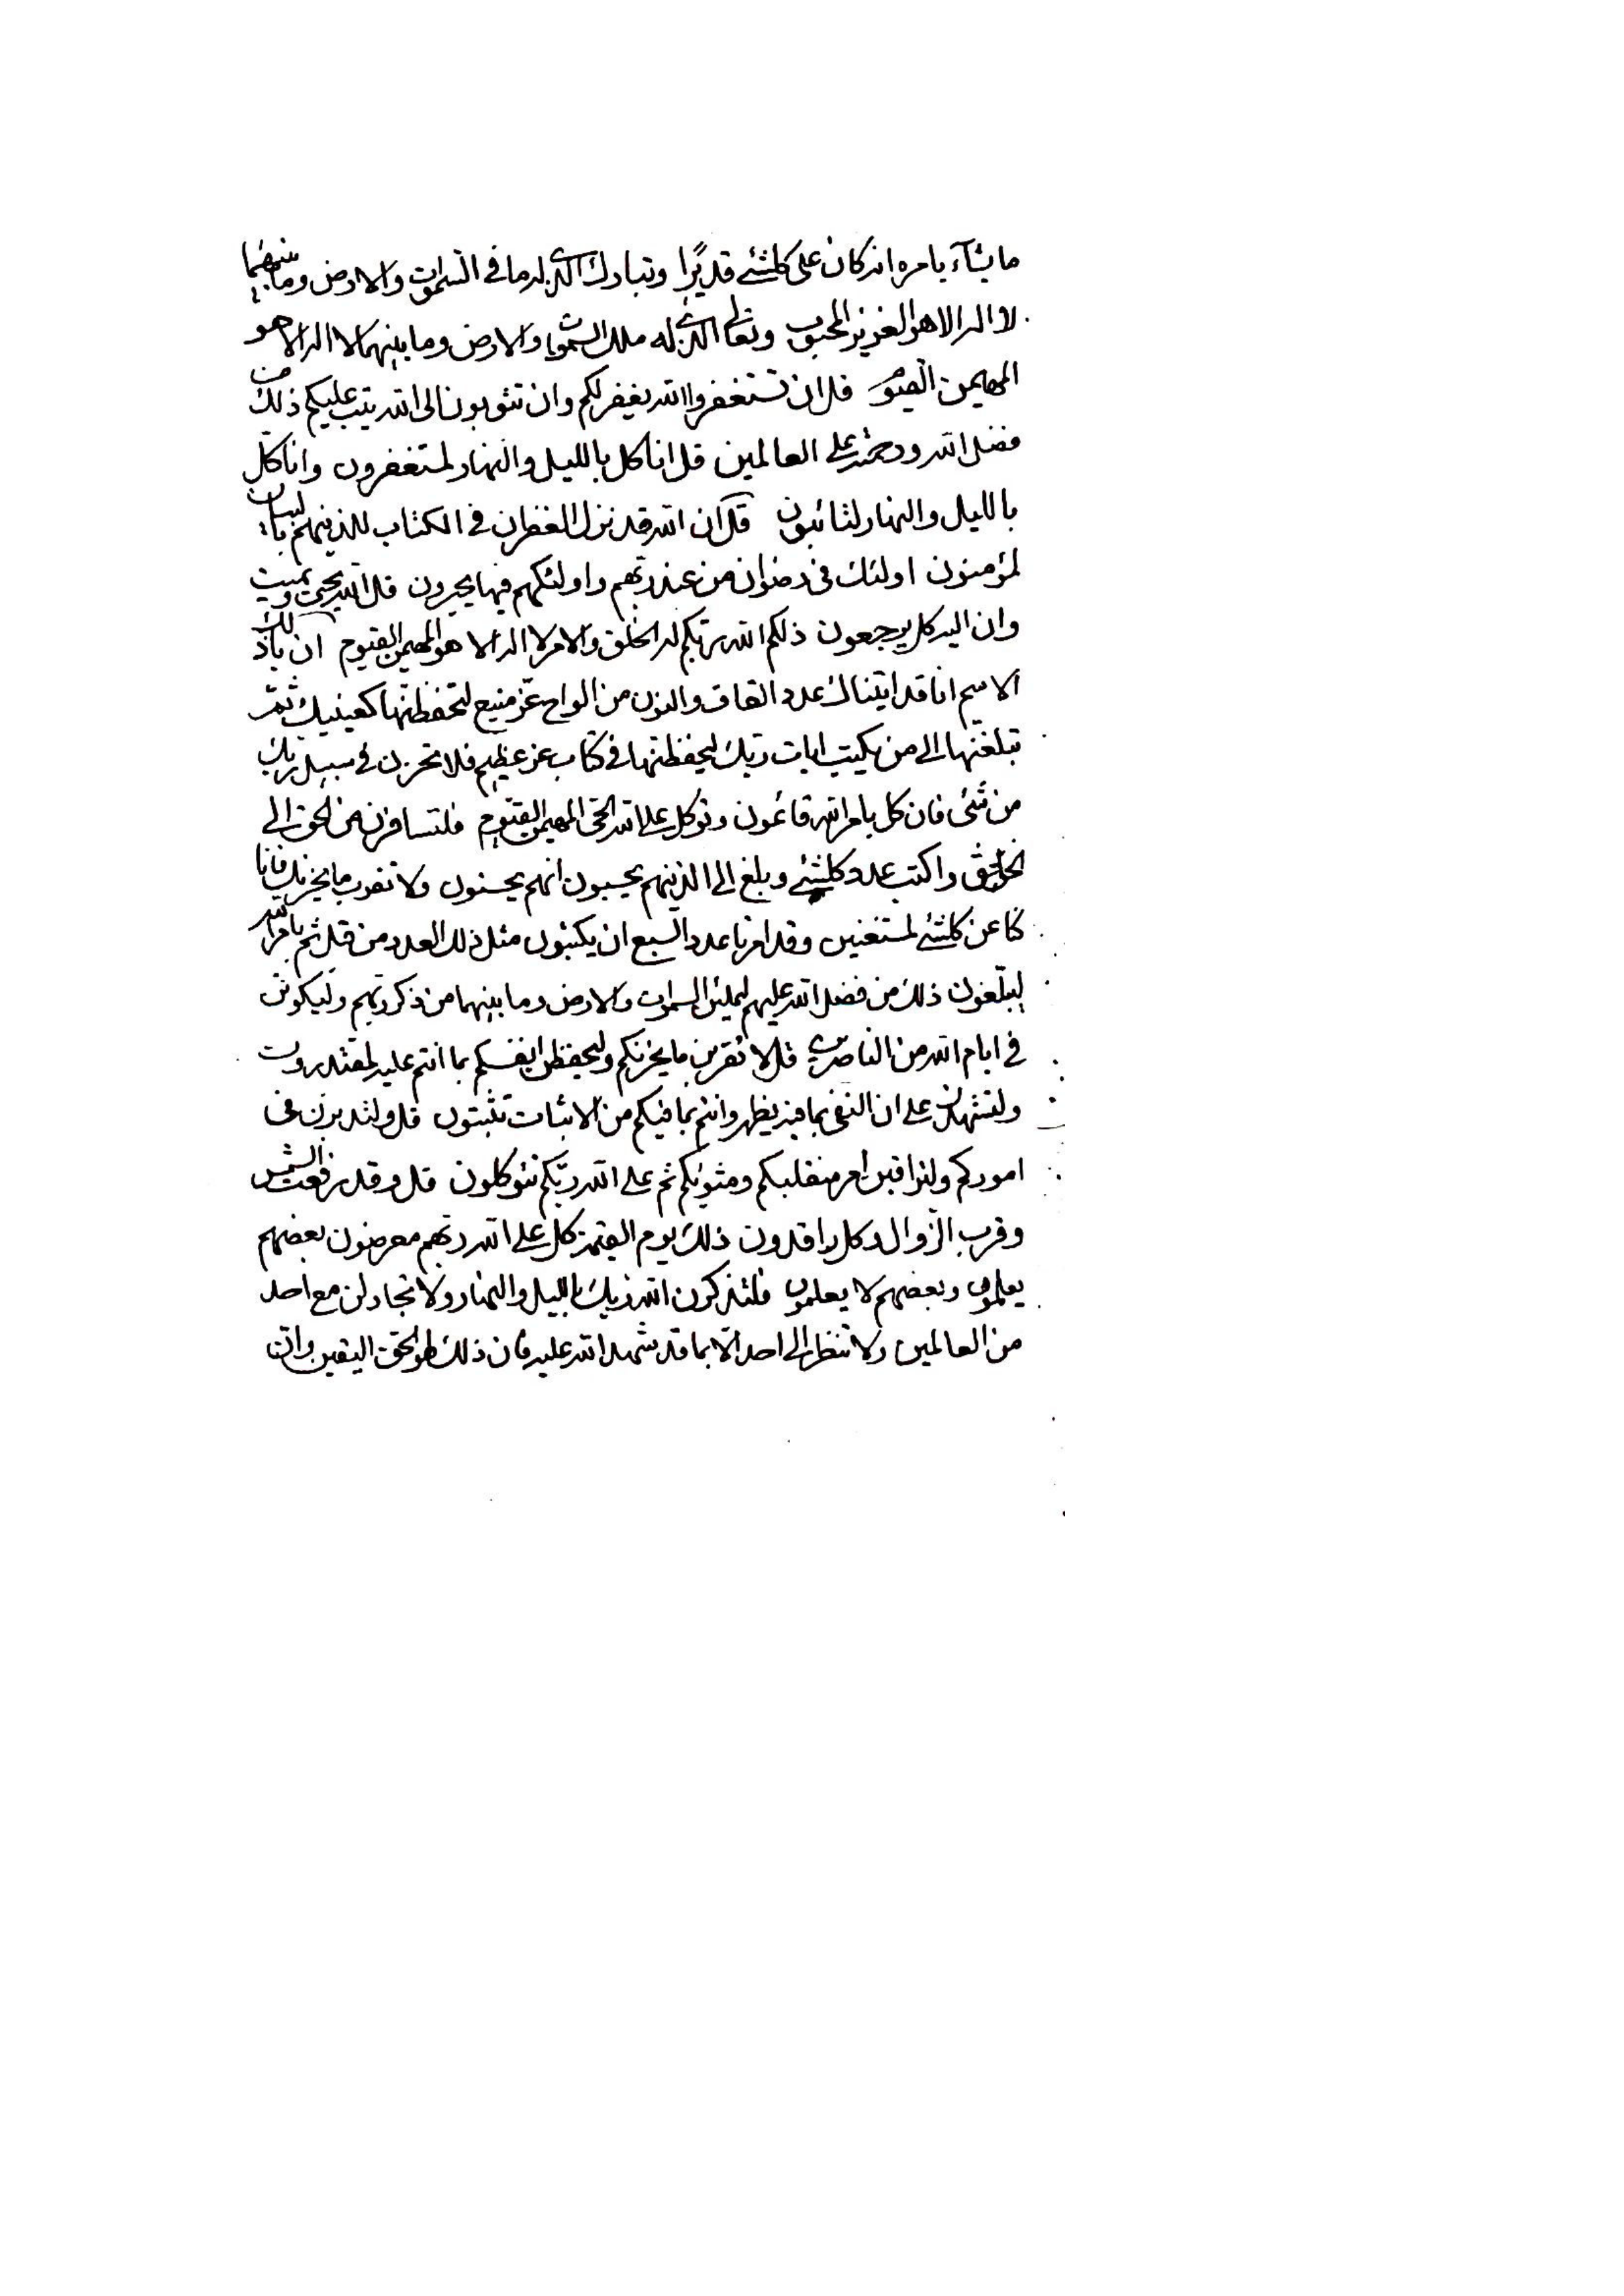 ما يشآء بامره انه كان على كلشئ قديرًا وتبارك الذي له ما في السموات والارض وما بينهما
لا اله الا هو العزيز المحبوب وتعالى الذي له ملك السموات والارض وما بينهما لا اله الا هو
المهيمن القيوم قل ان تستغفروا الله يغفر لكم وان تتوبون الى الله يتب عليكم ذلك من
فضل الله ورحمته على العالمين قل انا كل بالليل والنهار لمستغفرون وانا كل
بالليل والنهار لتائبون قل ان الله قد نزل الغفران في الكتاب للذينهم بالبيان
لمؤمنون اولئك في رضوان من عند ربهم واولئكهم فيها يحبرون قل الله يحيى ويميت
وان اليه كل يرجعون ذلكم الله ربكم له الخلق والامر لا اله الا هو المهيمن القيوم ان يا ذلك
الاسم انا قد اتيناك عدد القاف والنون من الواح عز منيع لتحفظنها كعينيك ثم
تبلغنها الى من يكتب ايات ربك ليحفظنها في كتاب عز عظيم فلا تحزن في سبيل ربك
من شئ فان كل بامر الله قائمون وتوكل على الله الحي المهيمن القيوم فلتسافرن من الحق الى
الخلق واكتب عدد كلشئ وبلغ الى الذينهم يحسبون انهم يحسنون ولا تقرب ما يحزنك فانا
كنا عن كلشئ لمستغنين وقد امرنا عدد السبع ان يكتبون مثل ذلك العدد من قبل ثم بامر الله
ليبلغون ذلك من فضل الله عليهم ليملئن السموات والارض وما بينهما من ذكر ربهم وليكونن
في ايام الله من الناصرين قل لا تقربن ما يحزنكم ولتحفظن انفسكم بما انتم عليه لمقتدرون
ولتشهدن على ان النفي بما فيه يظهر وانتم بما فيكم من الاثبات تثبتون قل ولتدبرن في
اموركم ولتراقبن امر منقلبكم ومثويكم ثم على الله ربكم تتوكلون قل وقد رفعت الشمس
وقرب الزوال وكل راقدون ذلك يوم القيمة كل على الله ربهم معرضون بعضهم
يعلمون وبعضهم لا يعلمون فلتذكرن الله ربك بالليل والنهار ولا تجادلن مع احد
من العالمين ولا تنظر الى احد الا بما قد شهد الله عليه فان ذلك لهو الحق اليقين وان